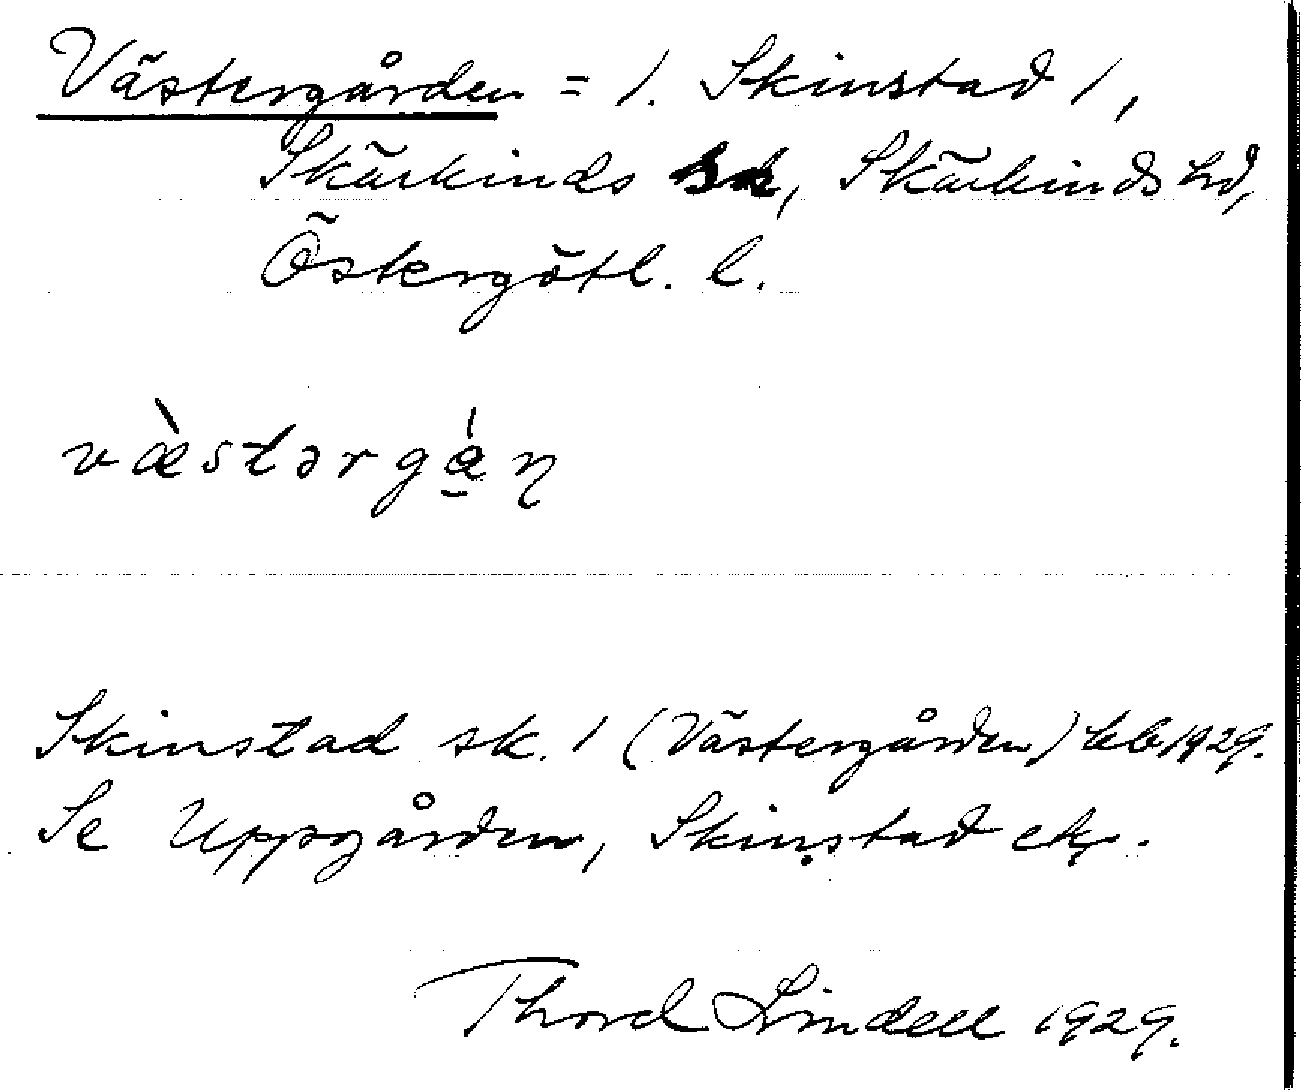 Västergården = 1. Skinstad 1,
Skärkinds sk, Skärkinds hd,
Östergötl. l.
væ̀stərgá̱ṇ
Skinstad sk. 1 (Västergården) kb 1929.
Se Uppgården, Skinstad
Thord Lindell 1929.